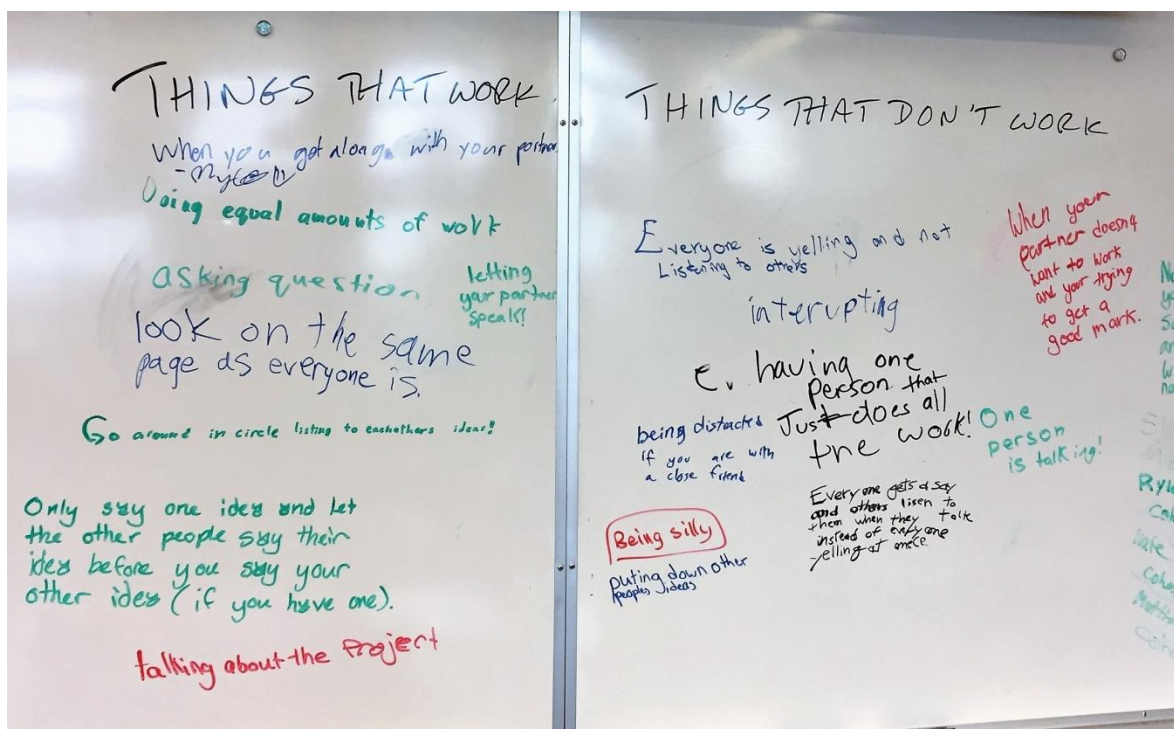 THINGS THAT WORK
When you get along with your partner
Doing equal amounts of work
asking question
letting
your partner
speak!
look on the same
page as everyone is.
Go around in circle listing to eachothers ideas!
Only say one idea and let
the other people say their
idea before you say your
other idea (if you have one).
talking about the Project
THINGS THAT DON'T WORK
Everyone is yelling and not
Listening to others
interupting
When your
partner doesn't
want to work
and your trying
to get a
good mark.
E. having one
person that
Just does all
the work!
being distacted
if you are with
a close friend
One
person
is talking!
Every one gets a say
and others lisen to
them when they talk
instead of every one
yelling at once.
Being silly
puting down other
peoples ideas